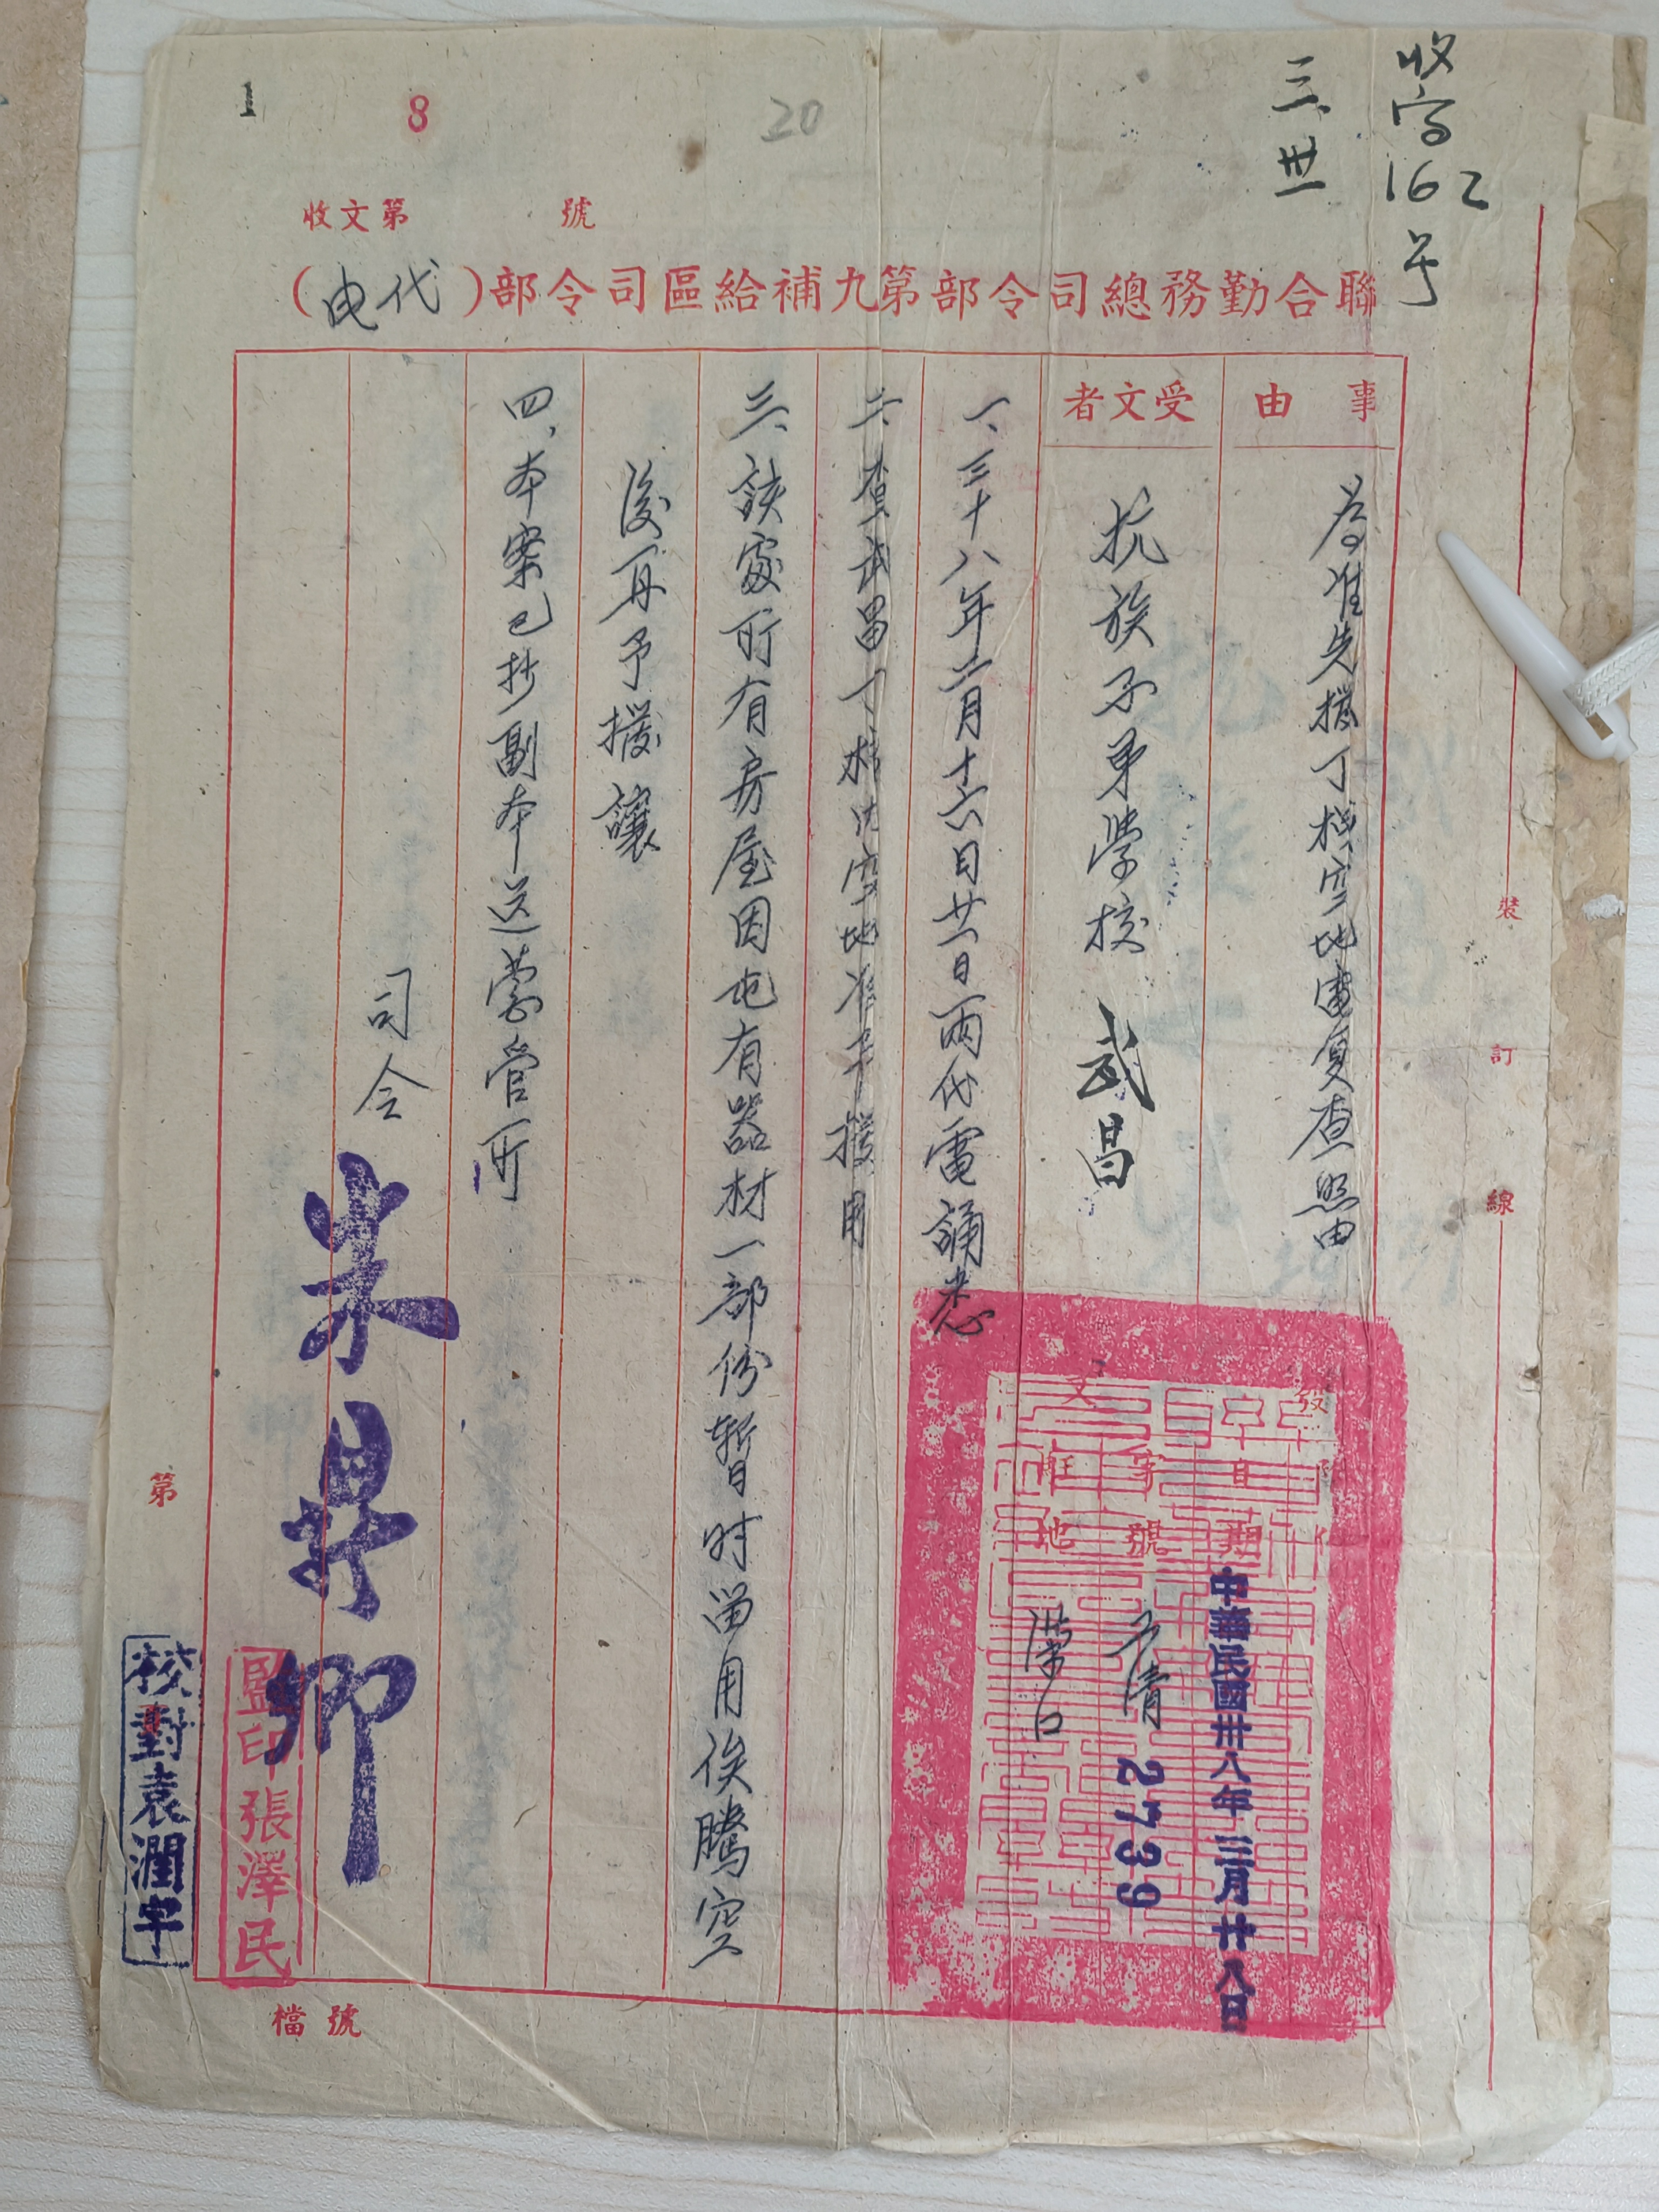 收字162号
三、卅一
1
8
20
收文第 號
聯合勤務總司令部第九補給區司令部(代电)
事由
為准先撥丁棧空地電复查照由
受文者
抗族子弟學校 武昌
一、三十八年二月十六日廿一日兩代電誦悉
二、查武昌丁棧內空地准予撥用
三、該處所有房屋因屯有器材一部份暂时留用俟騰空
後再予撥讓
四、本案已抄副本送營管所
司令
朱鼎卿
發
文
日期
中華民國卅八年三月廿八日
字號
清 2739
駐地
漢口
裝
訂
線
第
檔號
監印張澤民
校對袁潤宇